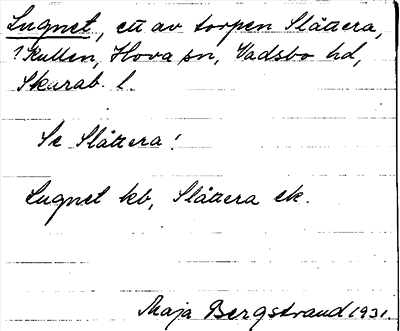 Lugnet, ett av torpen Slåttera,
? Kullen, Hova sn, Vadsbo hd,
Skarab. l.
Se Slåttera!
Lugnet kb, Slåttera ek.
Maja Bergstrand 1931.